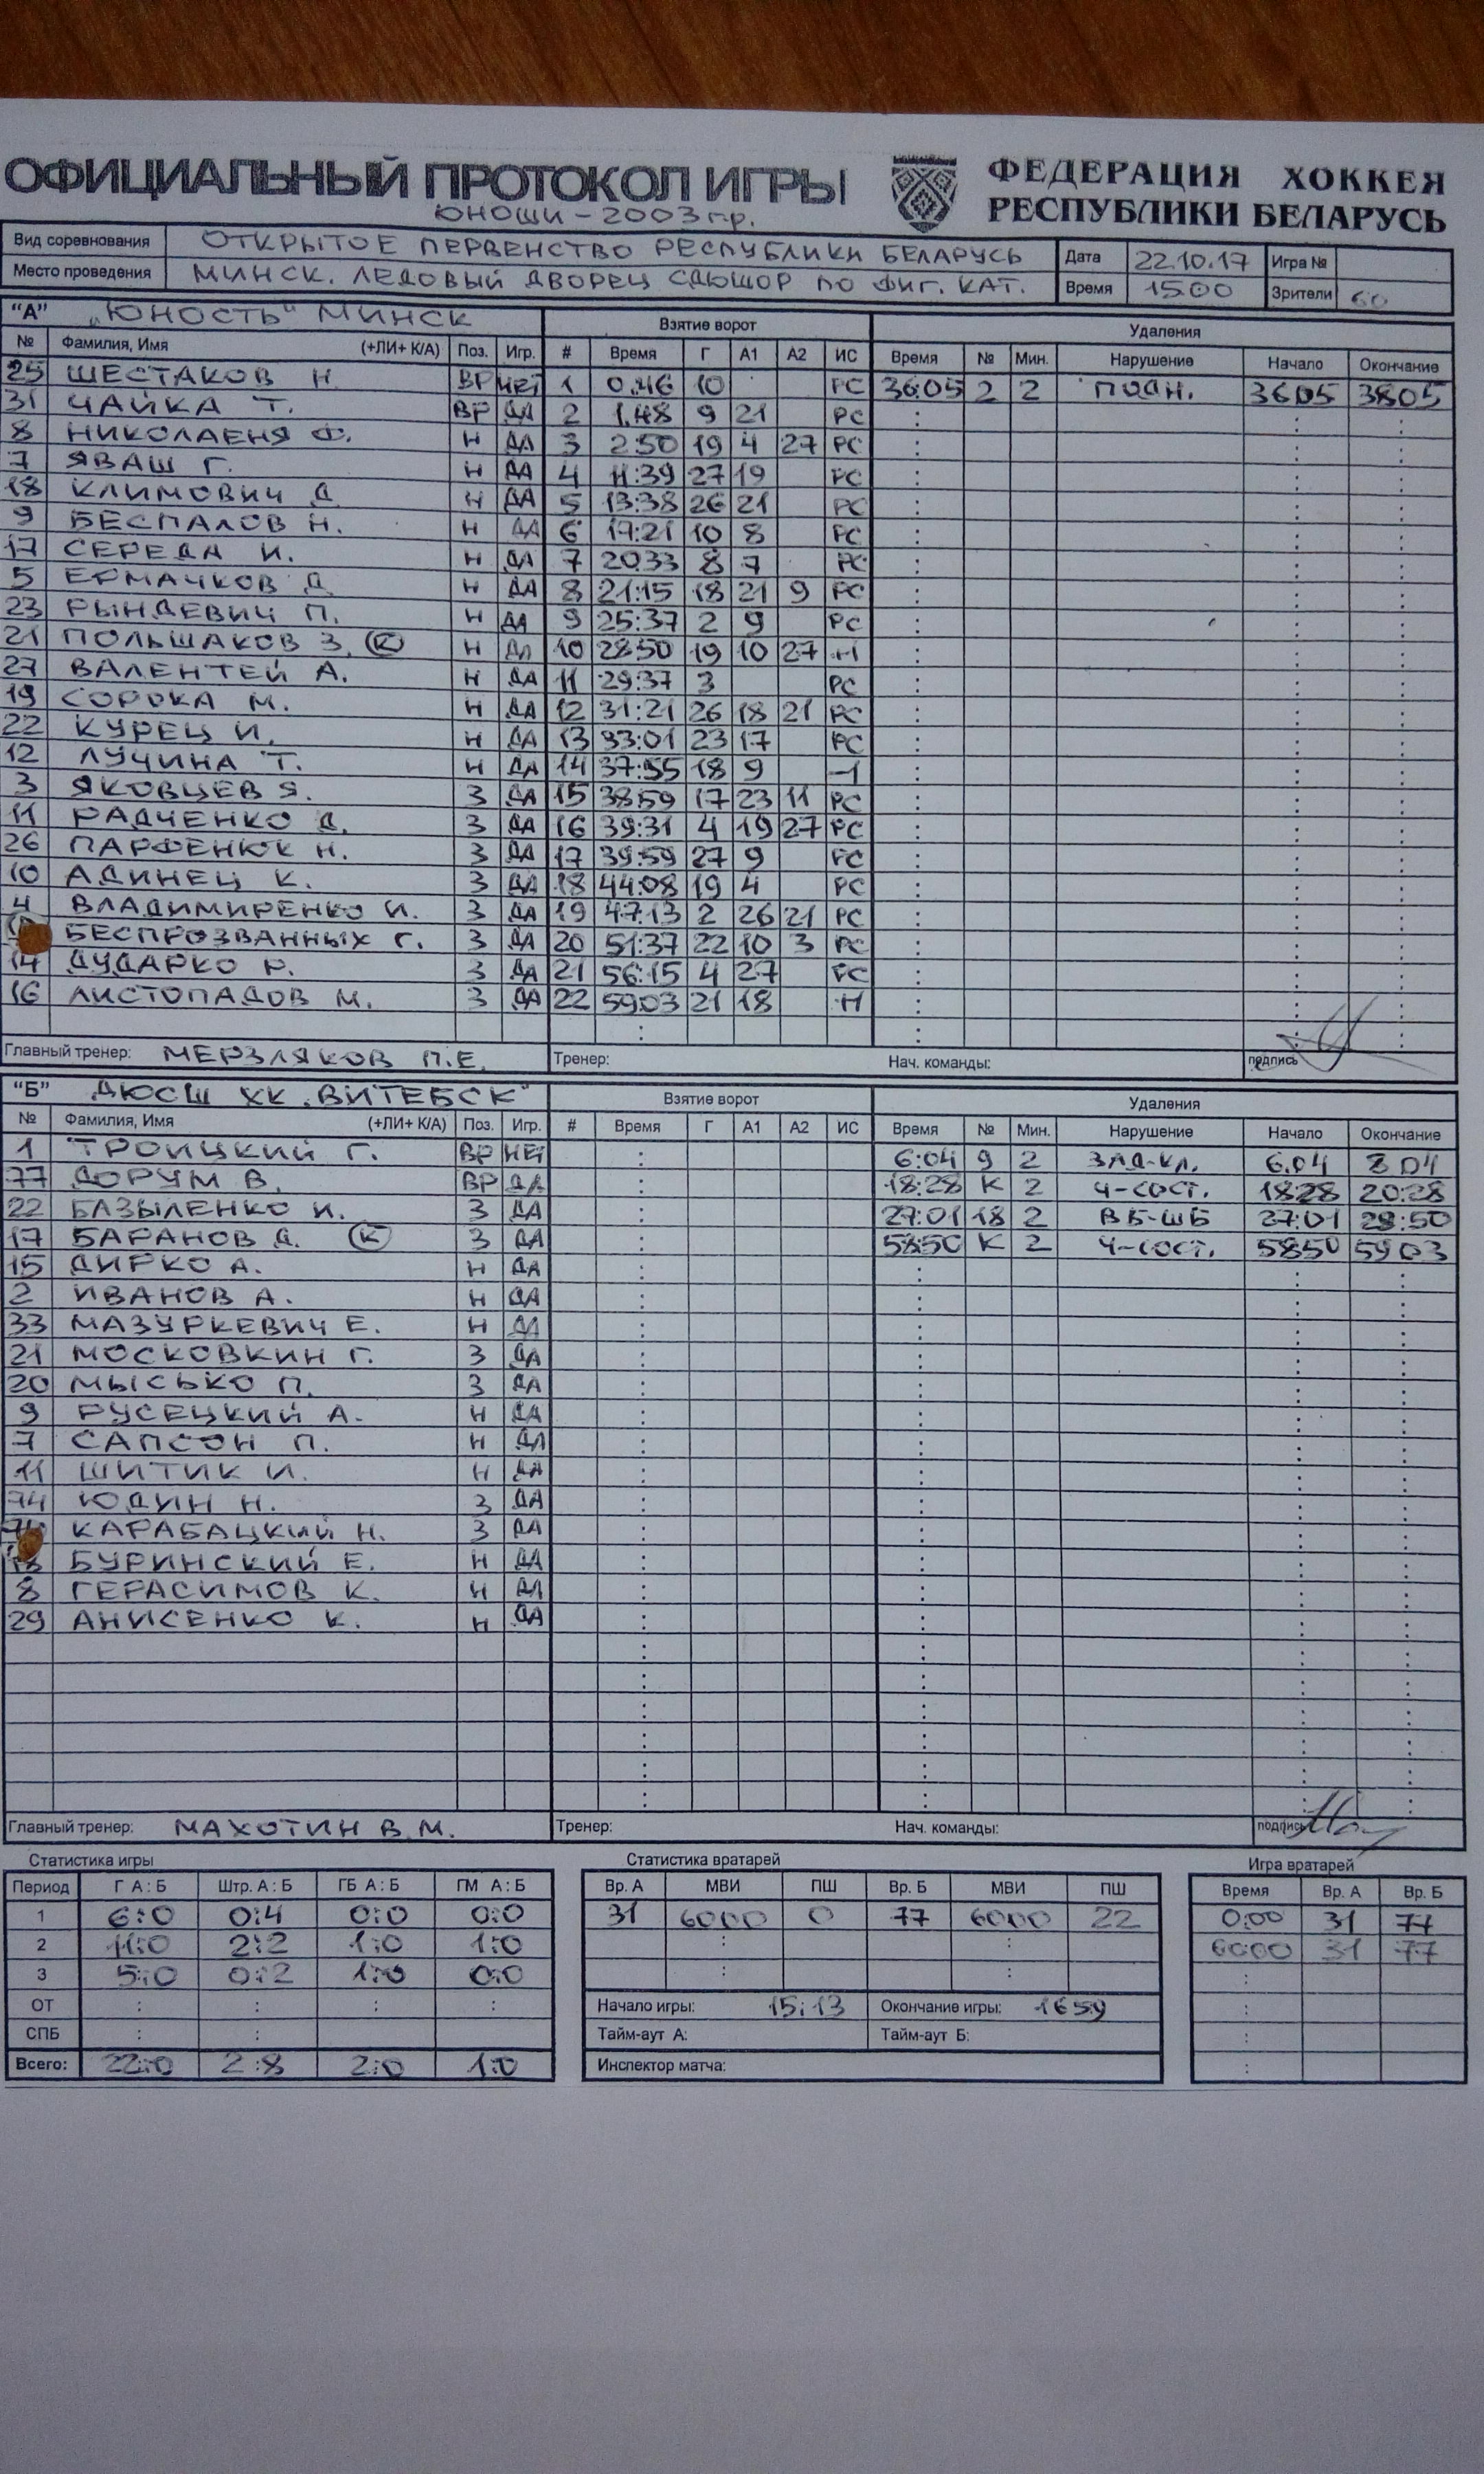 ОФИЦИАЛЬНЫЙ ПРОТОКОЛ ИГРЫ
ЮНОШИ - 2003 г.р.
ФЕДЕРАЦИЯ ХОККЕЯ
РЕСПУБЛИКИ БЕЛАРУСЬ
Вид соревнования ОТКРЫТОЕ ПЕРВЕНСТВО РЕСПУБЛИКИ БЕЛАРУСЬ Дата 22.10.17 Игра №
Место проведения МИНСК. ЛЕДОВЫЙ ДВОРЕЦ СДЮШОР ПО ФИГ. КАТ. Время 15.00 Зрители 60
"А" "ЮНОСТЬ" МИНСК Взятие ворот Удаления
№ Фамилия, Имя (+ЛИ+ К/А) Поз. Игр. # Время Г А1 А2 ИС Время № Мин. Нарушение Начало Окончание
25 ШЕСТАКОВ Н. ВР НЕТ 1 0:46 10 РС 36:05 2 2 ПОДН. 36:05 38:05
31 ЧАЙКА Т. ВР ДА 2 1:48 9 21 РС
8 НИКОЛАЕНЯ Ф. Н ДА 3 2:50 19 4 27 РС
7 ЯВАШ Г. Н ДА 4 11:39 27 19 РС
18 КЛИМОВИЧ Д. Н ДА 5 13:38 26 21 РС
9 БЕСПАЛОВ Н. Н ДА 6 17:21 10 8 РС
17 СЕРЕДА И. Н ДА 7 20:33 8 7 РС
5 ЕРМАЧКОВ Д. Н ДА 8 21:15 18 21 9 РС
23 РЫНДЕВИЧ П. Н ДА 9 25:37 2 9 РС
21 ПОЛЬШАКОВ З. (К) Н ДА 10 28:50 19 10 27 +1
27 ВАЛЕНТЕЙ А. Н ДА 11 29:37 3 РС
19 СОРОКА М. Н ДА 12 31:21 26 18 21 РС
22 КУРЕЦ И. Н ДА 13 33:01 23 17 РС
12 ЛУЧИНА Т. Н ДА 14 37:55 18 9 -1
3 ЯКОВЦЕВ Я. З ДА 15 38:59 17 23 11 РС
11 РАДЧЕНКО Д. З ДА 16 39:31 4 19 27 РС
26 ПАРФЕНЮК Н. З ДА 17 39:59 27 9 РС
10 АДИНЕЦ К. З ДА 18 44:08 19 4 РС
4 ВЛАДИМИРЕНКО И. З ДА 19 47:13 2 26 21 РС
БЕСПРОЗВАННЫХ Г. З ДА 20 51:37 22 10 3 РС
14 ДУДАРКО Р. З ДА 21 56:15 4 27 РС
16 ЛИСТОПАДОВ М. З ДА 22 59:03 21 18 +1
Главный тренер: МЕРЗЛЯКОВ П.Е. Тренер: Нач. команды: подпись
"Б" ДЮСШ ХК "ВИТЕБСК" Взятие ворот Удаления
№ Фамилия, Имя (+ЛИ+ К/А) Поз. Игр. # Время Г А1 А2 ИС Время № Мин. Нарушение Начало Окончание
1 ТРОИЦКИЙ Г. ВР НЕТ 6:04 9 2 ЗАД-КЛ. 6:04 8:04
77 ДОРУМ В. ВР ДА 18:28 К 2 Ч-СОСТ. 18:28 20:28
22 БАЗЫЛЕНКО И. З ДА 27:01 18 2 ВБ-ШБ 27:01 28:50
17 БАРАНОВ Д. (К) З ДА 58:50 К 2 Ч-СОСТ. 58:50 59:03
15 ДИРКО А. Н ДА
2 ИВАНОВ А. Н ДА
33 МАЗУРКЕВИЧ Е. Н ДА
21 МОСКОВКИН Г. З ДА
20 МЫСЬКО П. З ДА
9 РУСЕЦКИЙ А. Н ДА
7 САПСОН П. Н ДА
11 ШИТИК И. Н ДА
74 ЮДИН Н. З ДА
КАРАБАЦКИЙ Н. З ДА
БУРИНСКИЙ Е. Н ДА
8 ГЕРАСИМОВ К. Н ДА
29 АНИСЕНКО К. Н ДА
Главный тренер: МАХОТИН В.М. Тренер: Нач. команды: подпись
Статистика игры Статистика вратарей Игра вратарей
Период Г А : Б Штр. А : Б ГБ А : Б ГМ А : Б Вр. А МВИ ПШ Вр. Б МВИ ПШ Время Вр. А Вр. Б
1 6:0 0:4 0:0 0:0 31 60:00 0 77 60:00 22 0:00 31 77
2 11:0 2:2 1:0 1:0 60:00 31 77
3 5:0 0:2 1:0 0:0
ОТ : : : : Начало игры: 15:13 Окончание игры: 16:59
СПБ : : Тайм-аут А: Тайм-аут Б:
Всего: 22:0 2:8 2:0 1:0 Инспектор матча: